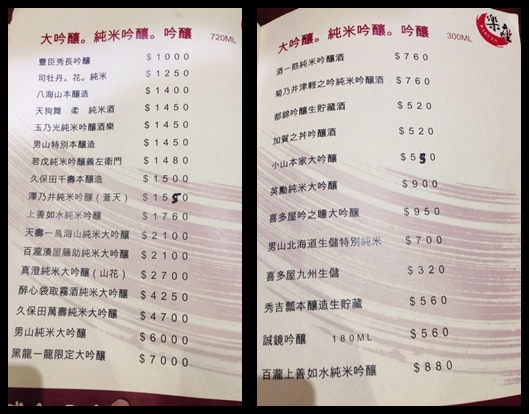 大吟釀。純米吟釀。吟釀 720ML
豐臣秀長吟釀 $1000
司牡丹。花。純米 $1250
八海山本釀造 $1400
天狗舞 柔 純米酒 $1450
玉乃光純米吟釀酒樂 $1450
男山特別本釀造 $1450
若戎純米吟釀義左衛門 $1480
久保田千壽本釀造 $1500
澤乃井純米吟釀(蒼天) $1550
上善如水純米吟釀 $1760
天壽一鳥海山純米大吟釀 $2100
百瀧湊屋藤助純米大吟釀 $2100
真澄純米大吟釀(山花) $2700
醉心袋取霧酒純米大吟釀 $4250
久保田萬壽純米大吟釀 $4700
男山純米大吟釀 $6000
黑龍一龍限定大吟釀 $7000
樂
大吟釀。純米吟釀。吟釀 300ML
酒一筋純米吟釀酒 $760
菊乃井津輕之吟純米吟釀酒 $760
都錦吟釀生貯藏酒 $520
加賀之丼吟釀酒 $520
小山本家大吟釀 $550
英勳純米大吟釀 $900
喜多屋吟之瞳大吟釀 $950
男山北海道生儲特別純米 $700
喜多屋九州生儲 $320
秀吉瓢本釀造生貯藏 $560
誠鏡吟釀 180ML $560
百瀧上善如水純米吟釀 $880